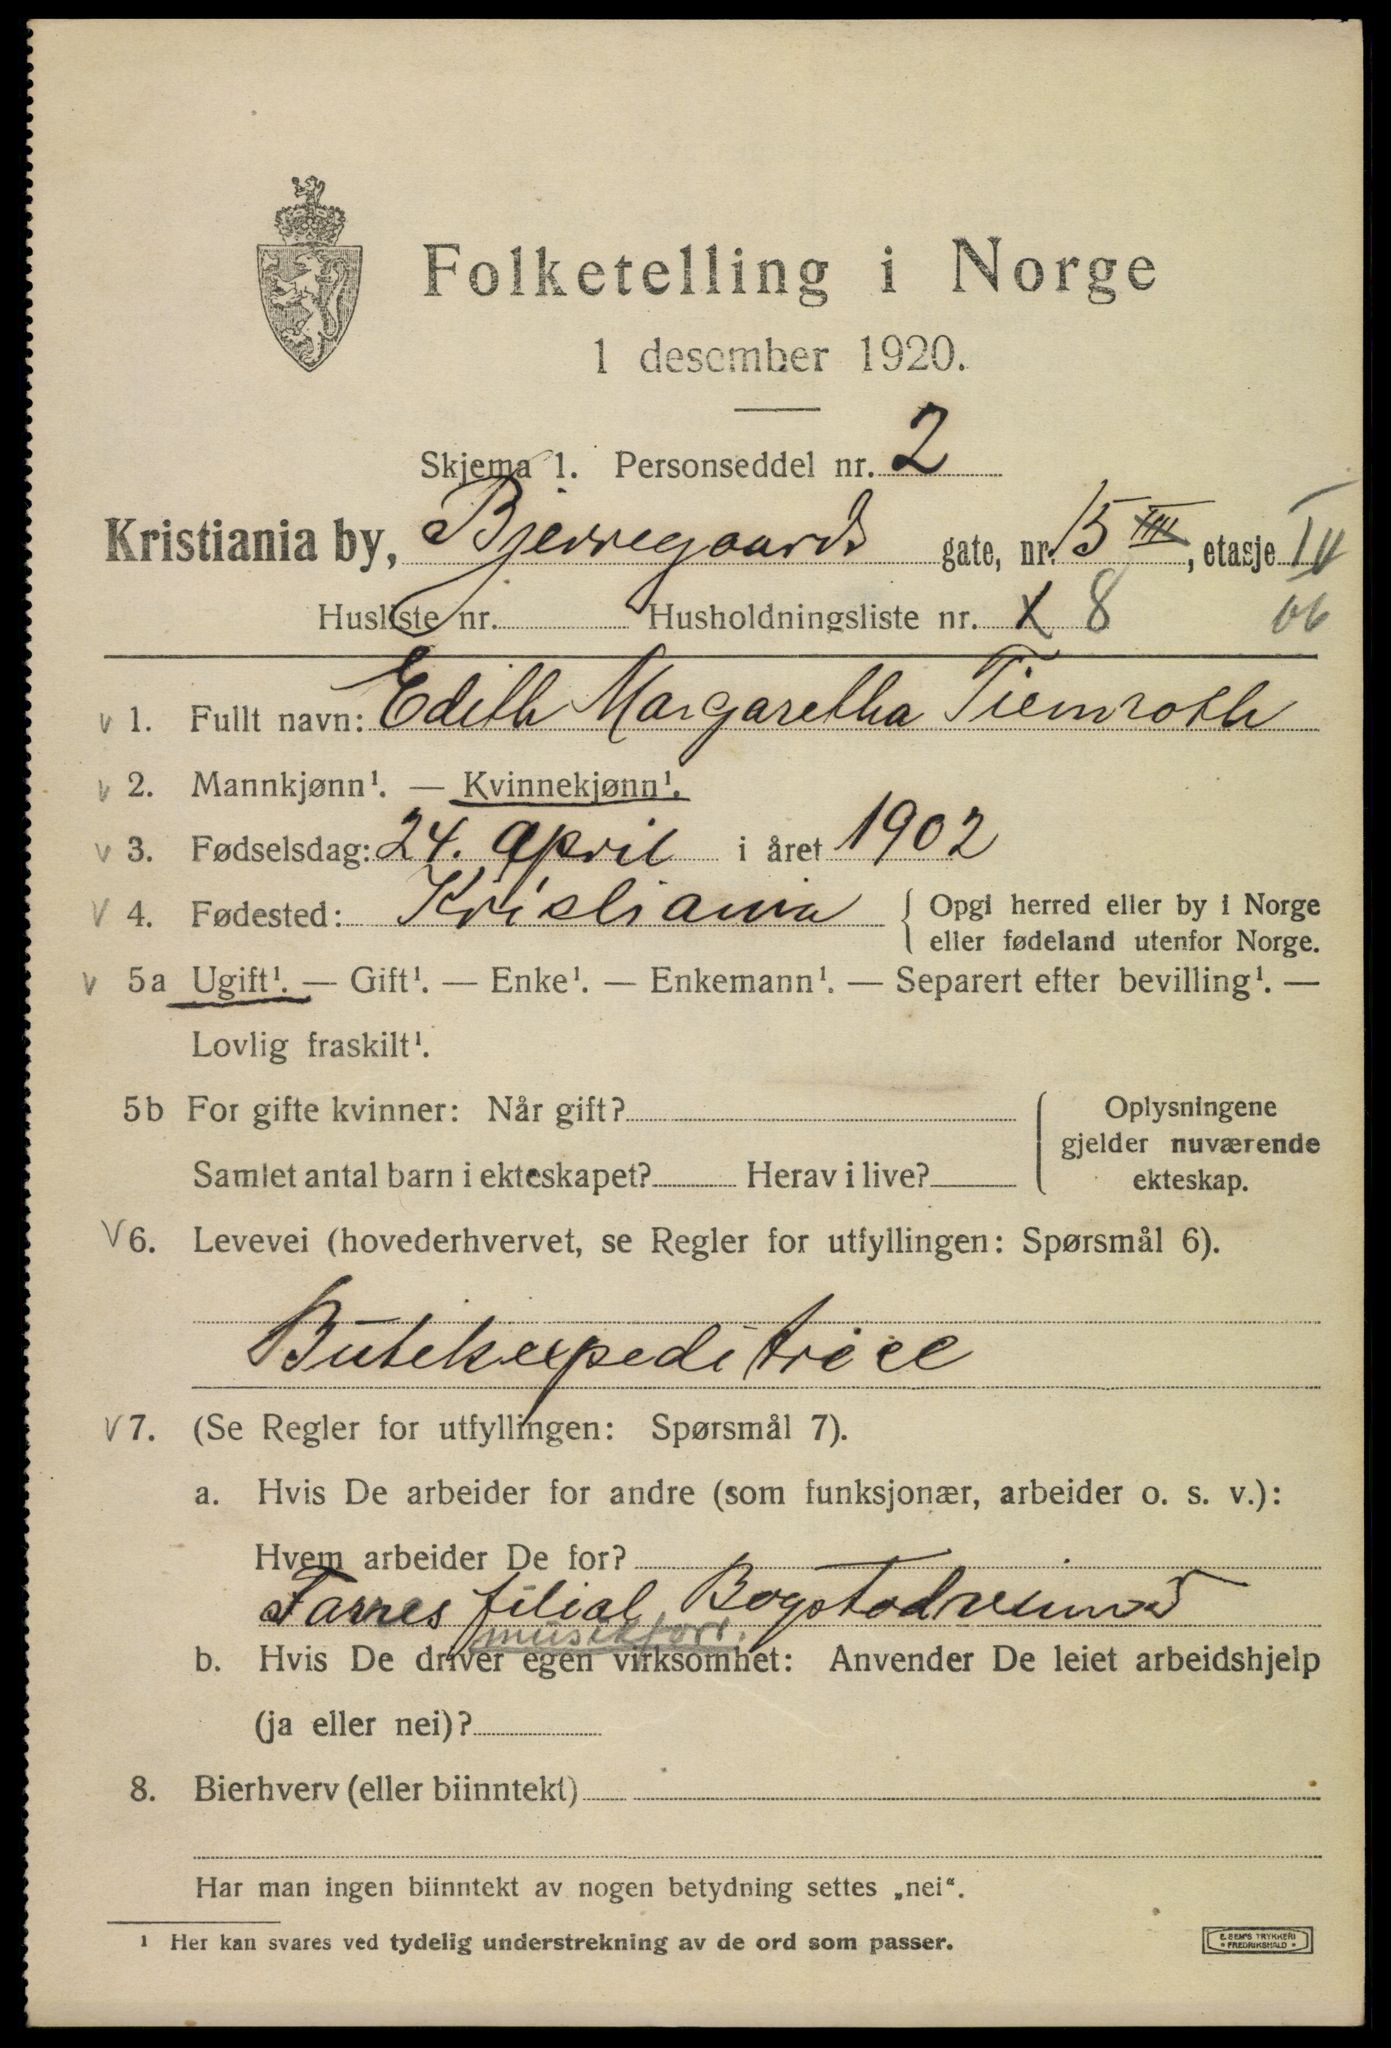 Folketelling i Norge
1 desember 1920.
Skjema 1. Personseddel nr. 2
Kristiania by, Bjerregaards gate, nr. 15 III, etasje IV
Husliste nr. Husholdningsliste nr. X 8
v 1. Fullt navn: Edith Margaretha Tiemroth
v 2. Mannkjønn¹. — Kvinnekjønn¹.
v 3. Fødselsdag: 24. April i året 1902
v 4. Fødested: Kristiania { Opgi herred eller by i Norge
eller fødeland utenfor Norge.
v 5a Ugift¹. — Gift¹. — Enke¹. — Enkemann¹. — Separert efter bevilling¹. —
Lovlig fraskilt¹.
5b For gifte kvinner: Når gift? Oplysningene
gjelder nuværende
Samlet antal barn i ekteskapet? Herav i live? ekteskap.
v 6. Levevei (hovederhvervet, se Regler for utfyllingen: Spørsmål 6).
Butikexpeditrice
v 7. (Se Regler for utfyllingen: Spørsmål 7).
a. Hvis De arbeider for andre (som funksjonær, arbeider o. s. v.):
Hvem arbeider De for?
Farres filial Bogstadveien
musikforr.
b. Hvis De driver egen virksomhet: Anvender De leiet arbeidshjelp
(ja eller nei)?
8. Bierhverv (eller biinntekt)
Har man ingen biinntekt av nogen betydning settes „nei“.
¹ Her kan svares ved tydelig understrekning av de ord som passer.
E. SEM'S TRYKKERI
• FREDRIKSHALD •